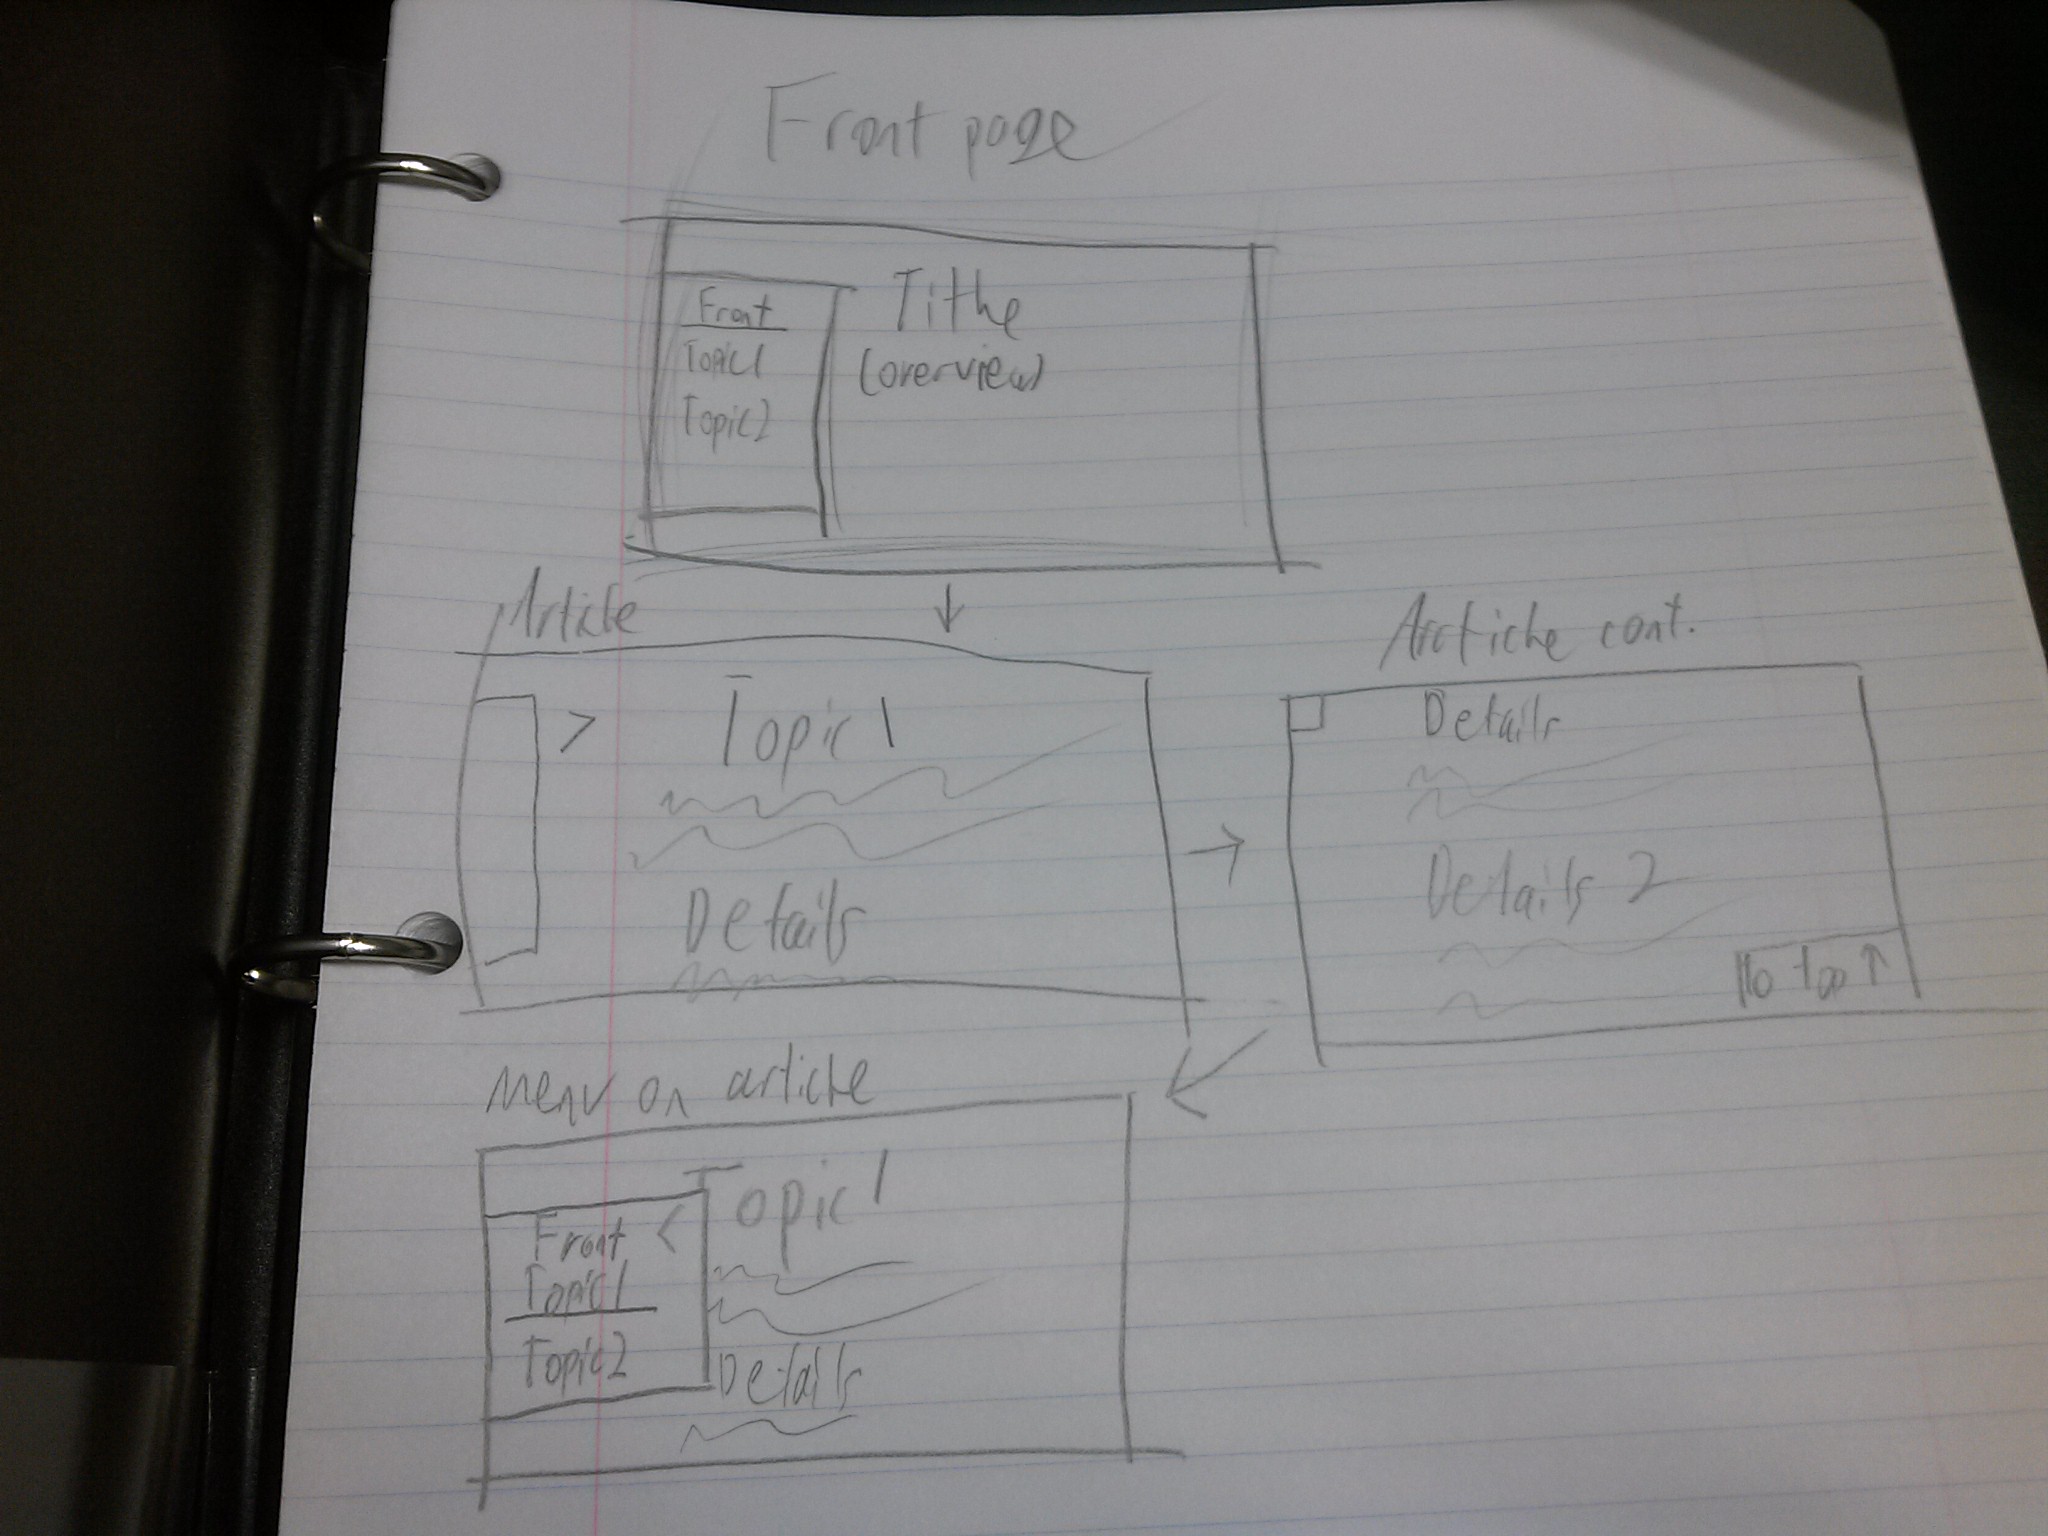 Front page
Front
Topic1
Topic2
Title
(overview)
Article
>
Topic 1
Details
Article cont.
Details
Details 2
to top ↑
Menu on article
Front <
Topic1
Topic2
Topic 1
Details